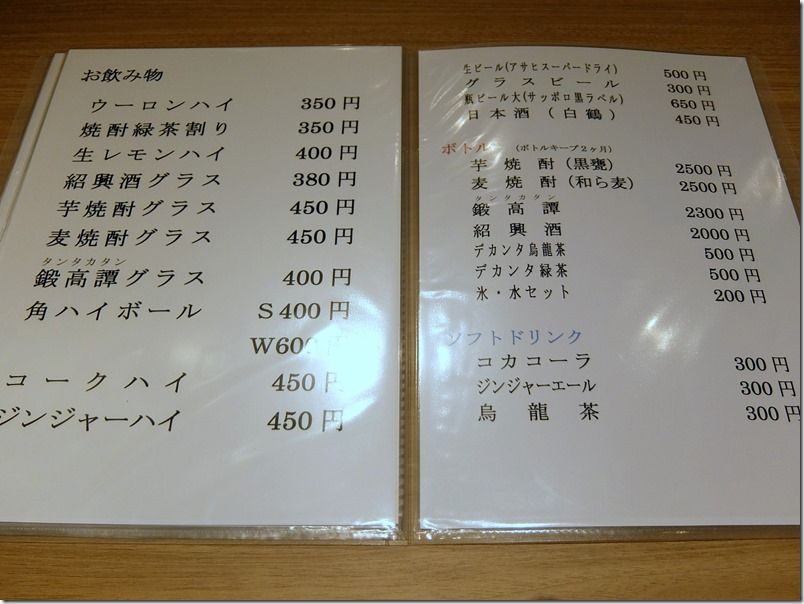 お飲み物
ウーロンハイ 350円
焼酎緑茶割り 350円
生レモンハイ 400円
紹興酒グラス 380円
芋焼酎グラス 450円
麦焼酎グラス 450円
タンタカタン
鍛高譚グラス 400円
角ハイボール S400円
W600円
コークハイ 450円
ジンジャーハイ 450円
生ビール(アサヒスーパードライ) 500円
グラスビール 300円
瓶ビール大(サッポロ黒ラベル) 650円
日本酒(白鶴) 450円
ボトル (ボトルキープ2ヶ月)
芋焼酎(黒甕) 2500円
麦焼酎(和ら麦) 2500円
タンタカタン
鍛高譚 2300円
紹興酒 2000円
デカンタ烏龍茶 500円
デカンタ緑茶 500円
氷・水セット 200円
ソフトドリンク
コカコーラ 300円
ジンジャーエール 300円
烏龍茶 300円